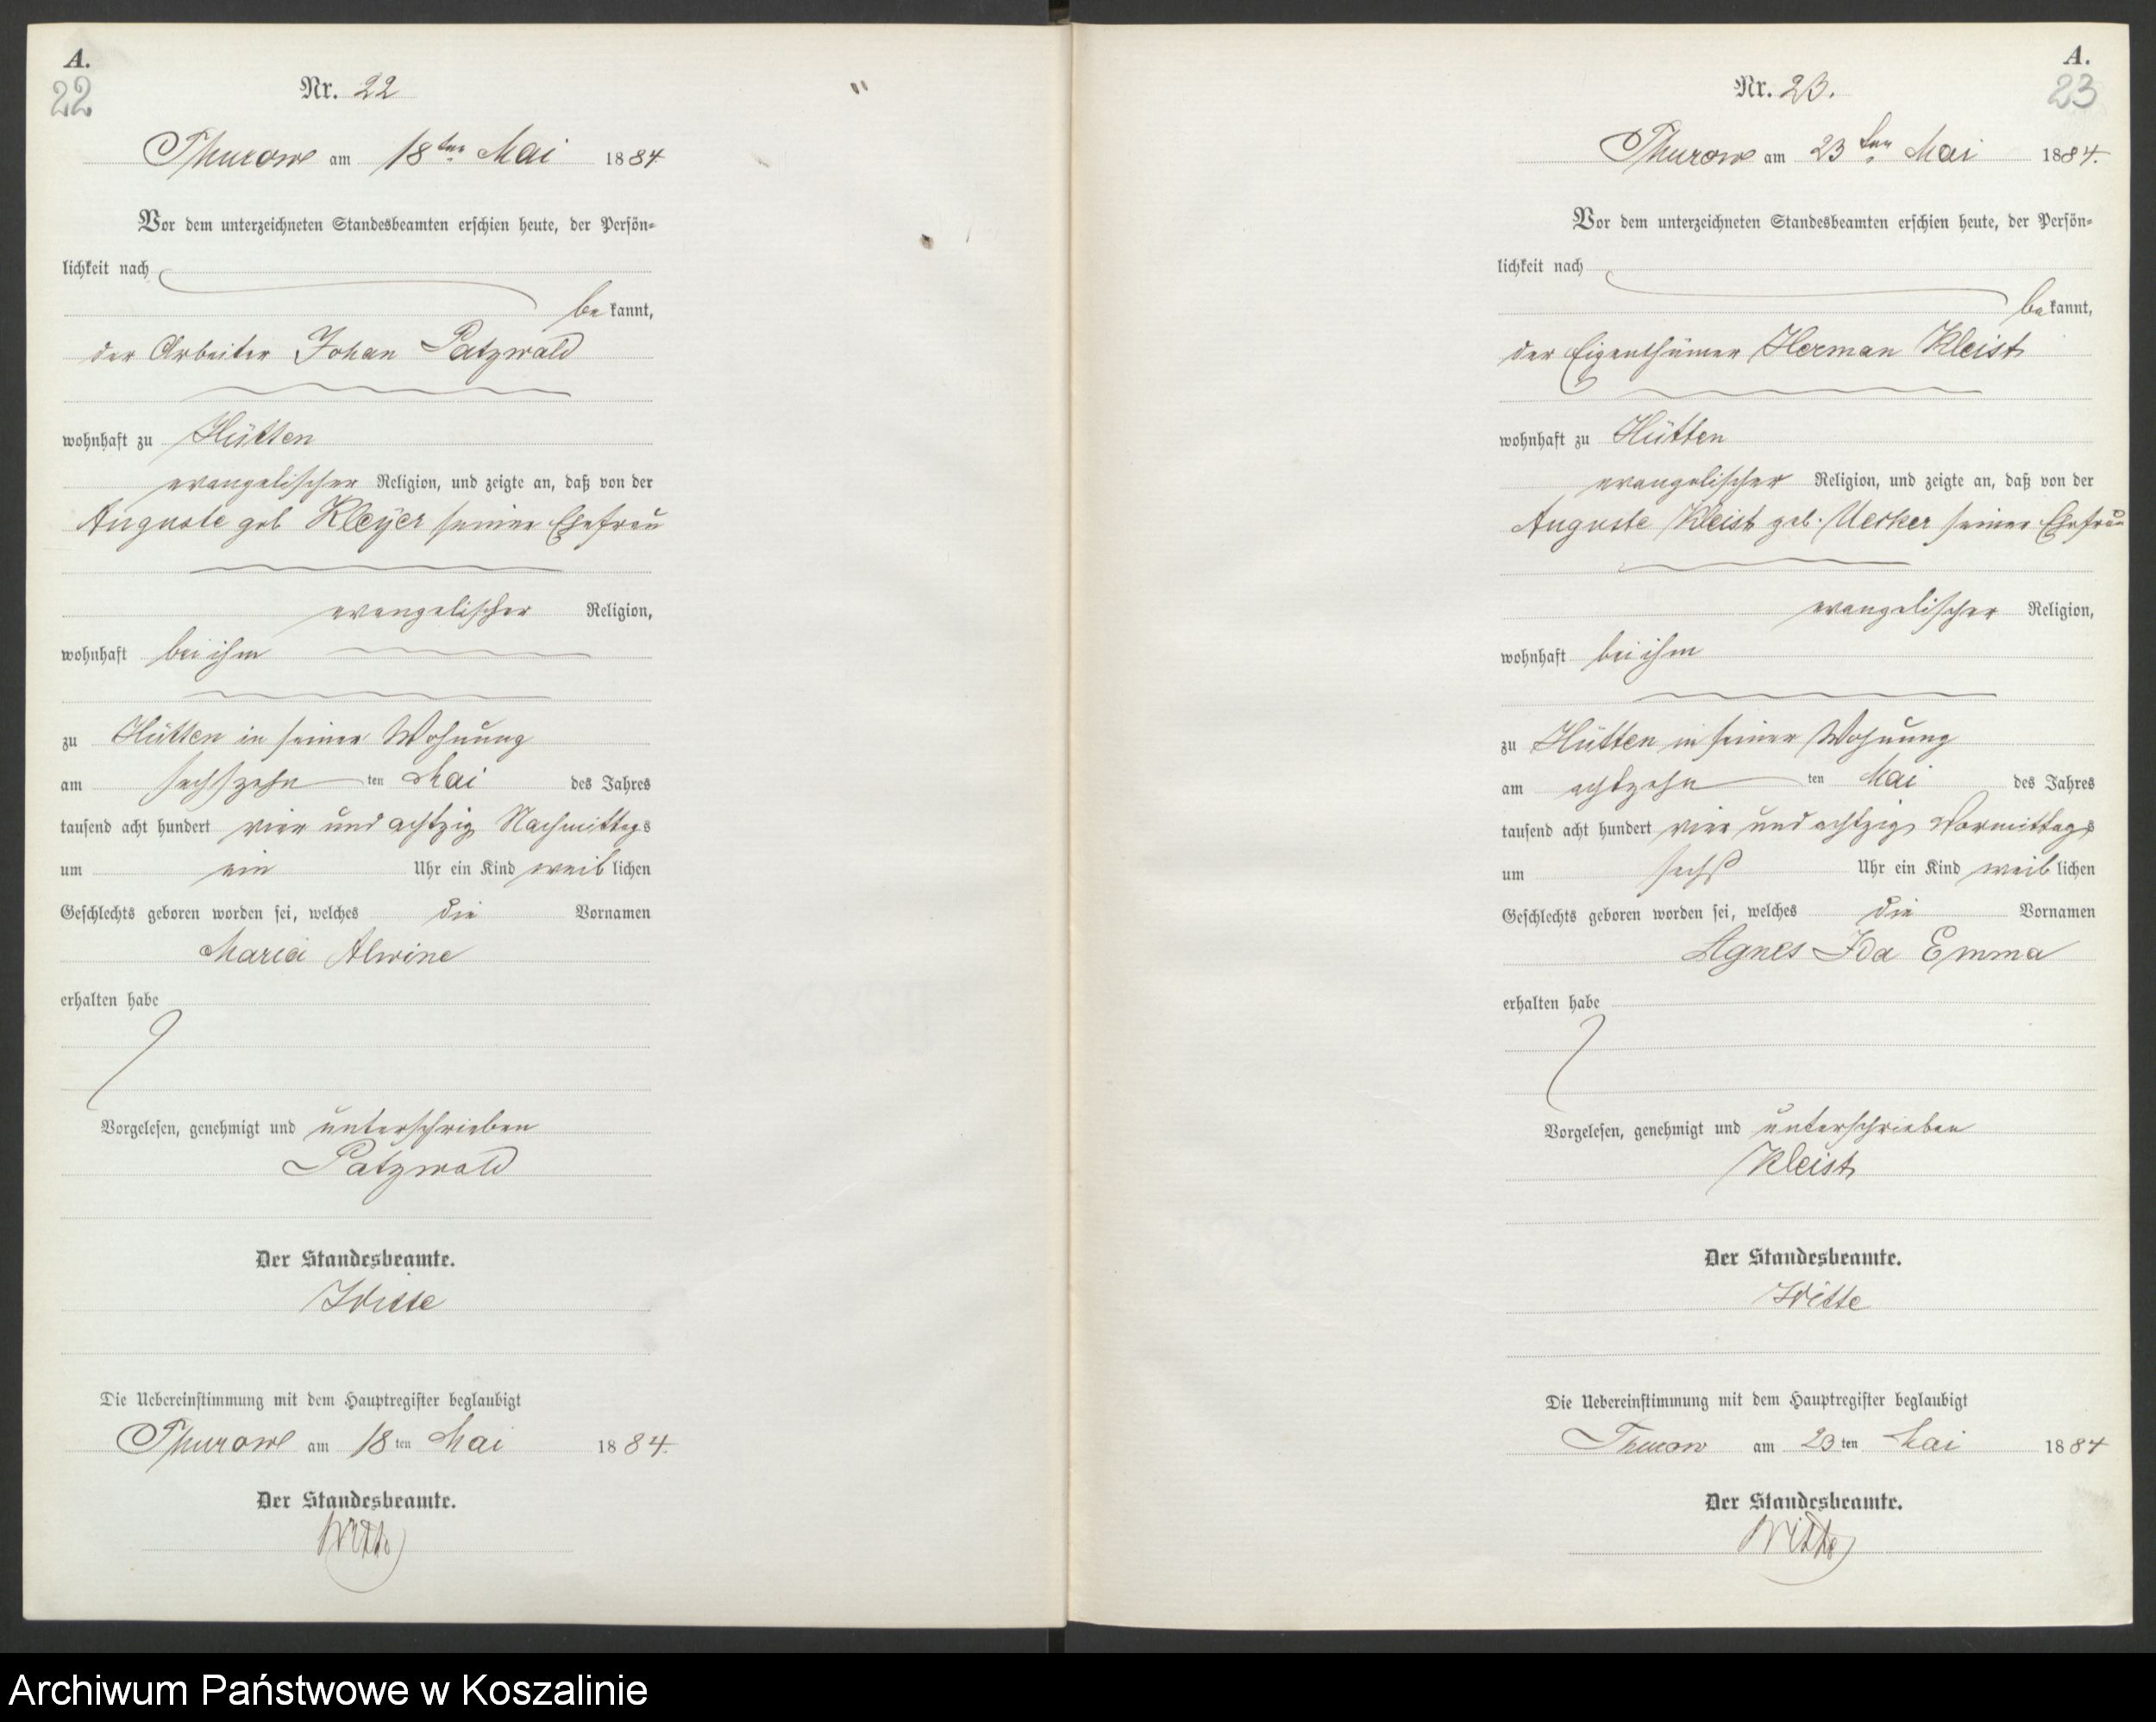 A.
22
Nr. 22
Thurow am 18ten Mai 1884
Vor dem unterzeichneten Standesbeamten erschien heute, der Persön-
lichkeit nach
bekannt,
der Arbeiter Johan Patzwald
wohnhaft zu Hütten
evangelischer Religion, und zeigte an, daß von der
Auguste geb Kleyer seiner Ehefrau
evangelischer Religion,
wohnhaft bei ihm
zu Hütten in seiner Wohnung
am sechszehn ten Mai des Jahres
tausend acht hundert vier und achtzig Nachmittags
um ein Uhr ein Kind weiblichen
Geschlechts geboren worden sei, welches die Vornamen
Maria Alwine
erhalten habe
Vorgelesen, genehmigt und unterschrieben
Patzwald
Der Standesbeamte.
Witte
Die Uebereinstimmung mit dem Hauptregister beglaubigt
Thurow am 18ten Mai 1884.
Der Standesbeamte.
Witte
A.
23
Nr. 23.
Thurow am 23ten Mai 1884.
Vor dem unterzeichneten Standesbeamten erschien heute, der Persön-
lichkeit nach
bekannt,
der Eigenthümer Herman Kleist
wohnhaft zu Hütten
evangelischer Religion, und zeigte an, daß von der
Auguste Kleist geb. Uecker seiner Ehefrau
evangelischer Religion,
wohnhaft bei ihm
zu Hütten in seiner Wohnung
am achtzehn ten Mai des Jahres
tausend acht hundert vier und achtzig Vormittags
um sechs Uhr ein Kind weiblichen
Geschlechts geboren worden sei, welches die Vornamen
Agnes Ida Emma
erhalten habe
Vorgelesen, genehmigt und unterschrieben
Kleist
Der Standesbeamte.
Witte
Die Uebereinstimmung mit dem Hauptregister beglaubigt
Thurow am 23ten Mai 1884
Der Standesbeamte.
Witte
Archiwum Państwowe w Koszalinie